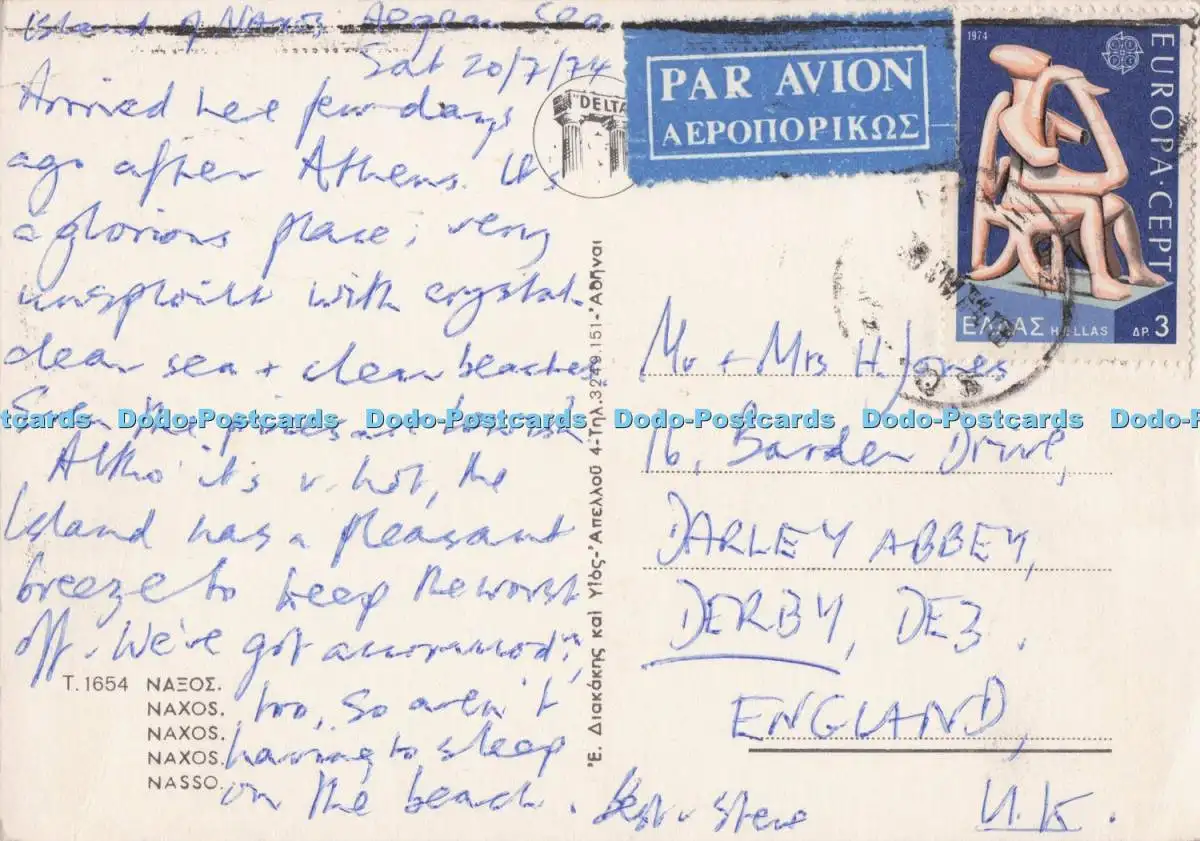 Island of Naxos, Aegean Sea
Sat 20/7/74
Arrived here few days
ago after Athens. It's
a glorious place; very
unspoilt with crystal-
clear sea + clean beaches.
Even the prices are
Altho' it's v. hot, the
Island has a pleasant
breeze to keep the worst
off. We've got accommod'n,
too, so aren't
having to sleep
on the beach. Best v Steve
T. 1654 ΝΑΞΟΣ.
NAXOS.
NAXOS.
NAXOS.
NASSO.
Έ. Διακάκης καί Υἱός-Ἀπελλοῦ 4-Τηλ.3249.151-Ἀθῆναι
"DELTA
PAR AVION
ΑΕΡΟΠΟΡΙΚΩΣ
1974
EUROPA·CEPT
ΕΛΛΑΣ HELLAS ΔΡ. 3
Mr + Mrs H. Jones
16, Barden Drive,
DARLEY ABBEY,
DERBY, DE3.
ENGLAND,
U.K.
Dodo-Postcards Dodo-Postcards Dodo-Postcards Dodo-Postcards Dodo-Postcards